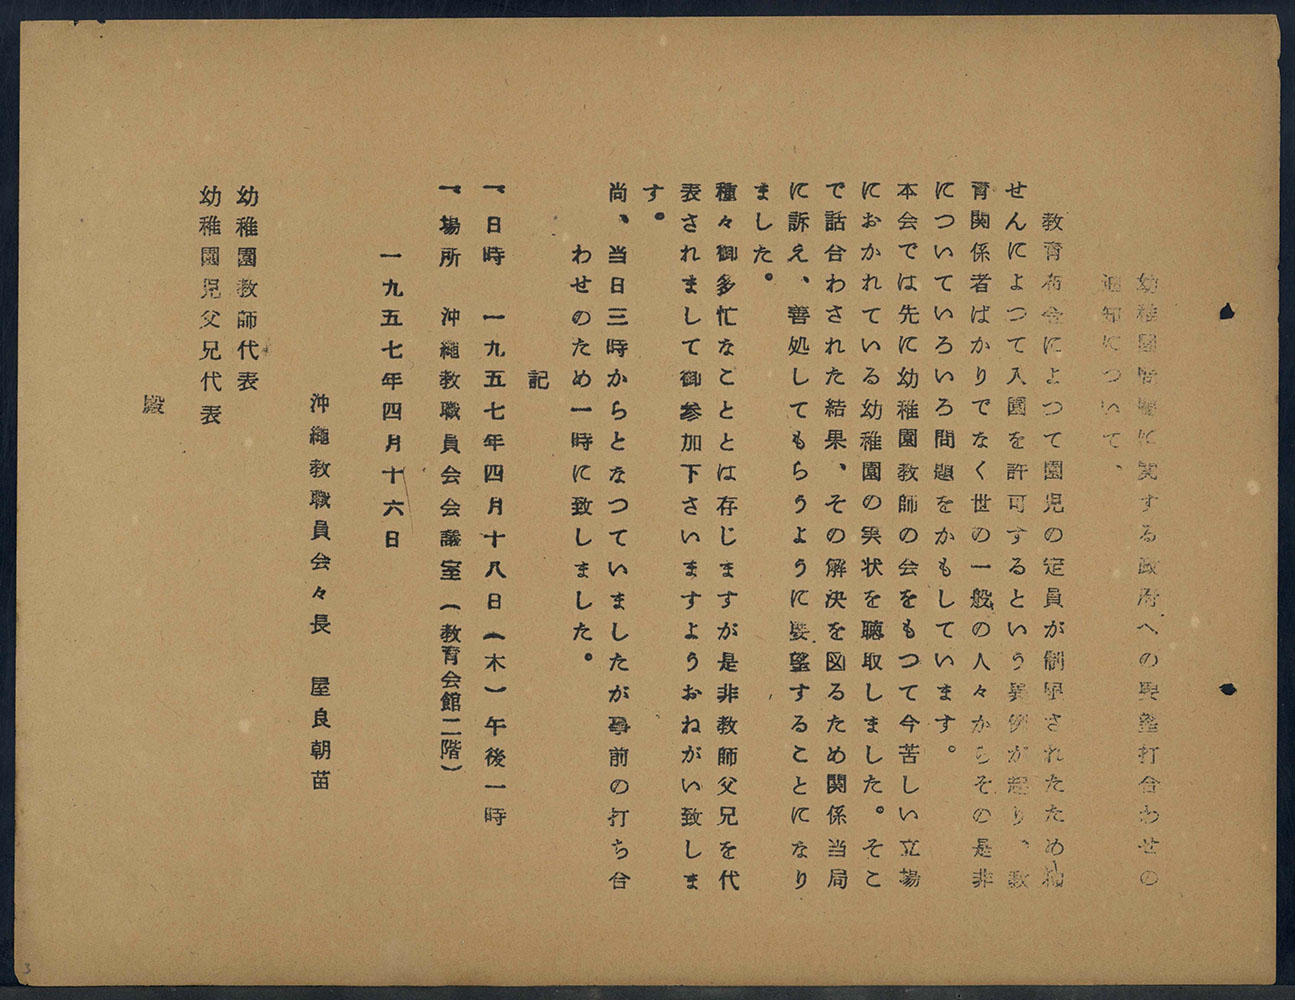 幼稚園問題に関する政府への要望打合わせの
通知について、
教育布令によつて園児の定員が制限されたため抽
せんによつて入園を許可するという異例が起り、教
育関係者ばかりでなく世の一般の人々からその是非
についていろいろ問題をかもしています。
本会では先に幼稚園教師の会をもつて今苦しい立場
におかれている幼稚園の実状を聴取しました。そこ
で話合わされた結果、その解決を図るため関係当局
に訴え、善処してもらうように要望することになり
ました。
種々御多忙なこととは存じますが是非教師父兄を代
表されまして御参加下さいますようおねがい致しま
す。
尚、当日三時からとなつていましたが事前の打ち合
わせのため一時に致しました。
記
一、日時 一九五七年四月十八日(木)午後一時
一、場所 沖縄教職員会会議室(教育会館二階)
一九五七年四月十六日
沖縄教職員会々長 屋良朝苗
幼稚園教師代表
幼稚園児父兄代表
殿
3